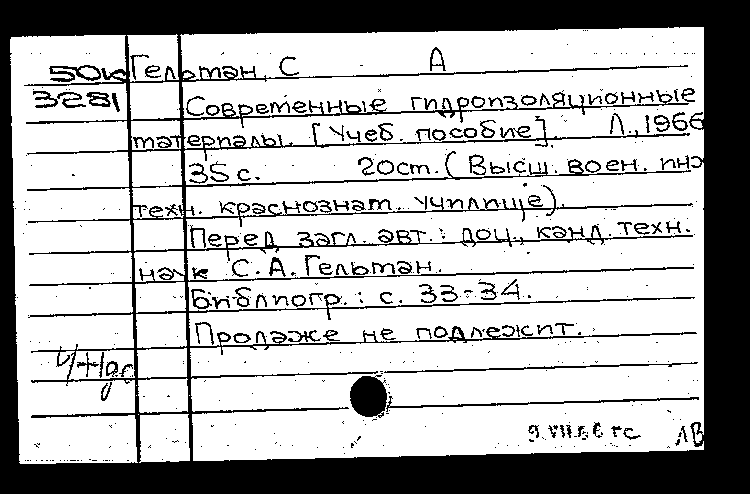 50к Гельман, С А
3281 Современные гидроизоляционные
материалы. [Учеб. пособие]. Л., 1966
35 с. 20 ст. (Высш. воен. инж
техн. краснознам. училище).
Перед загл. авт.: доц., канд. техн.
наук С. А. Гельман.
Библиогр.: с. 33-34.
Продаже не подлежит.
9.VII.66 гс ЛВ